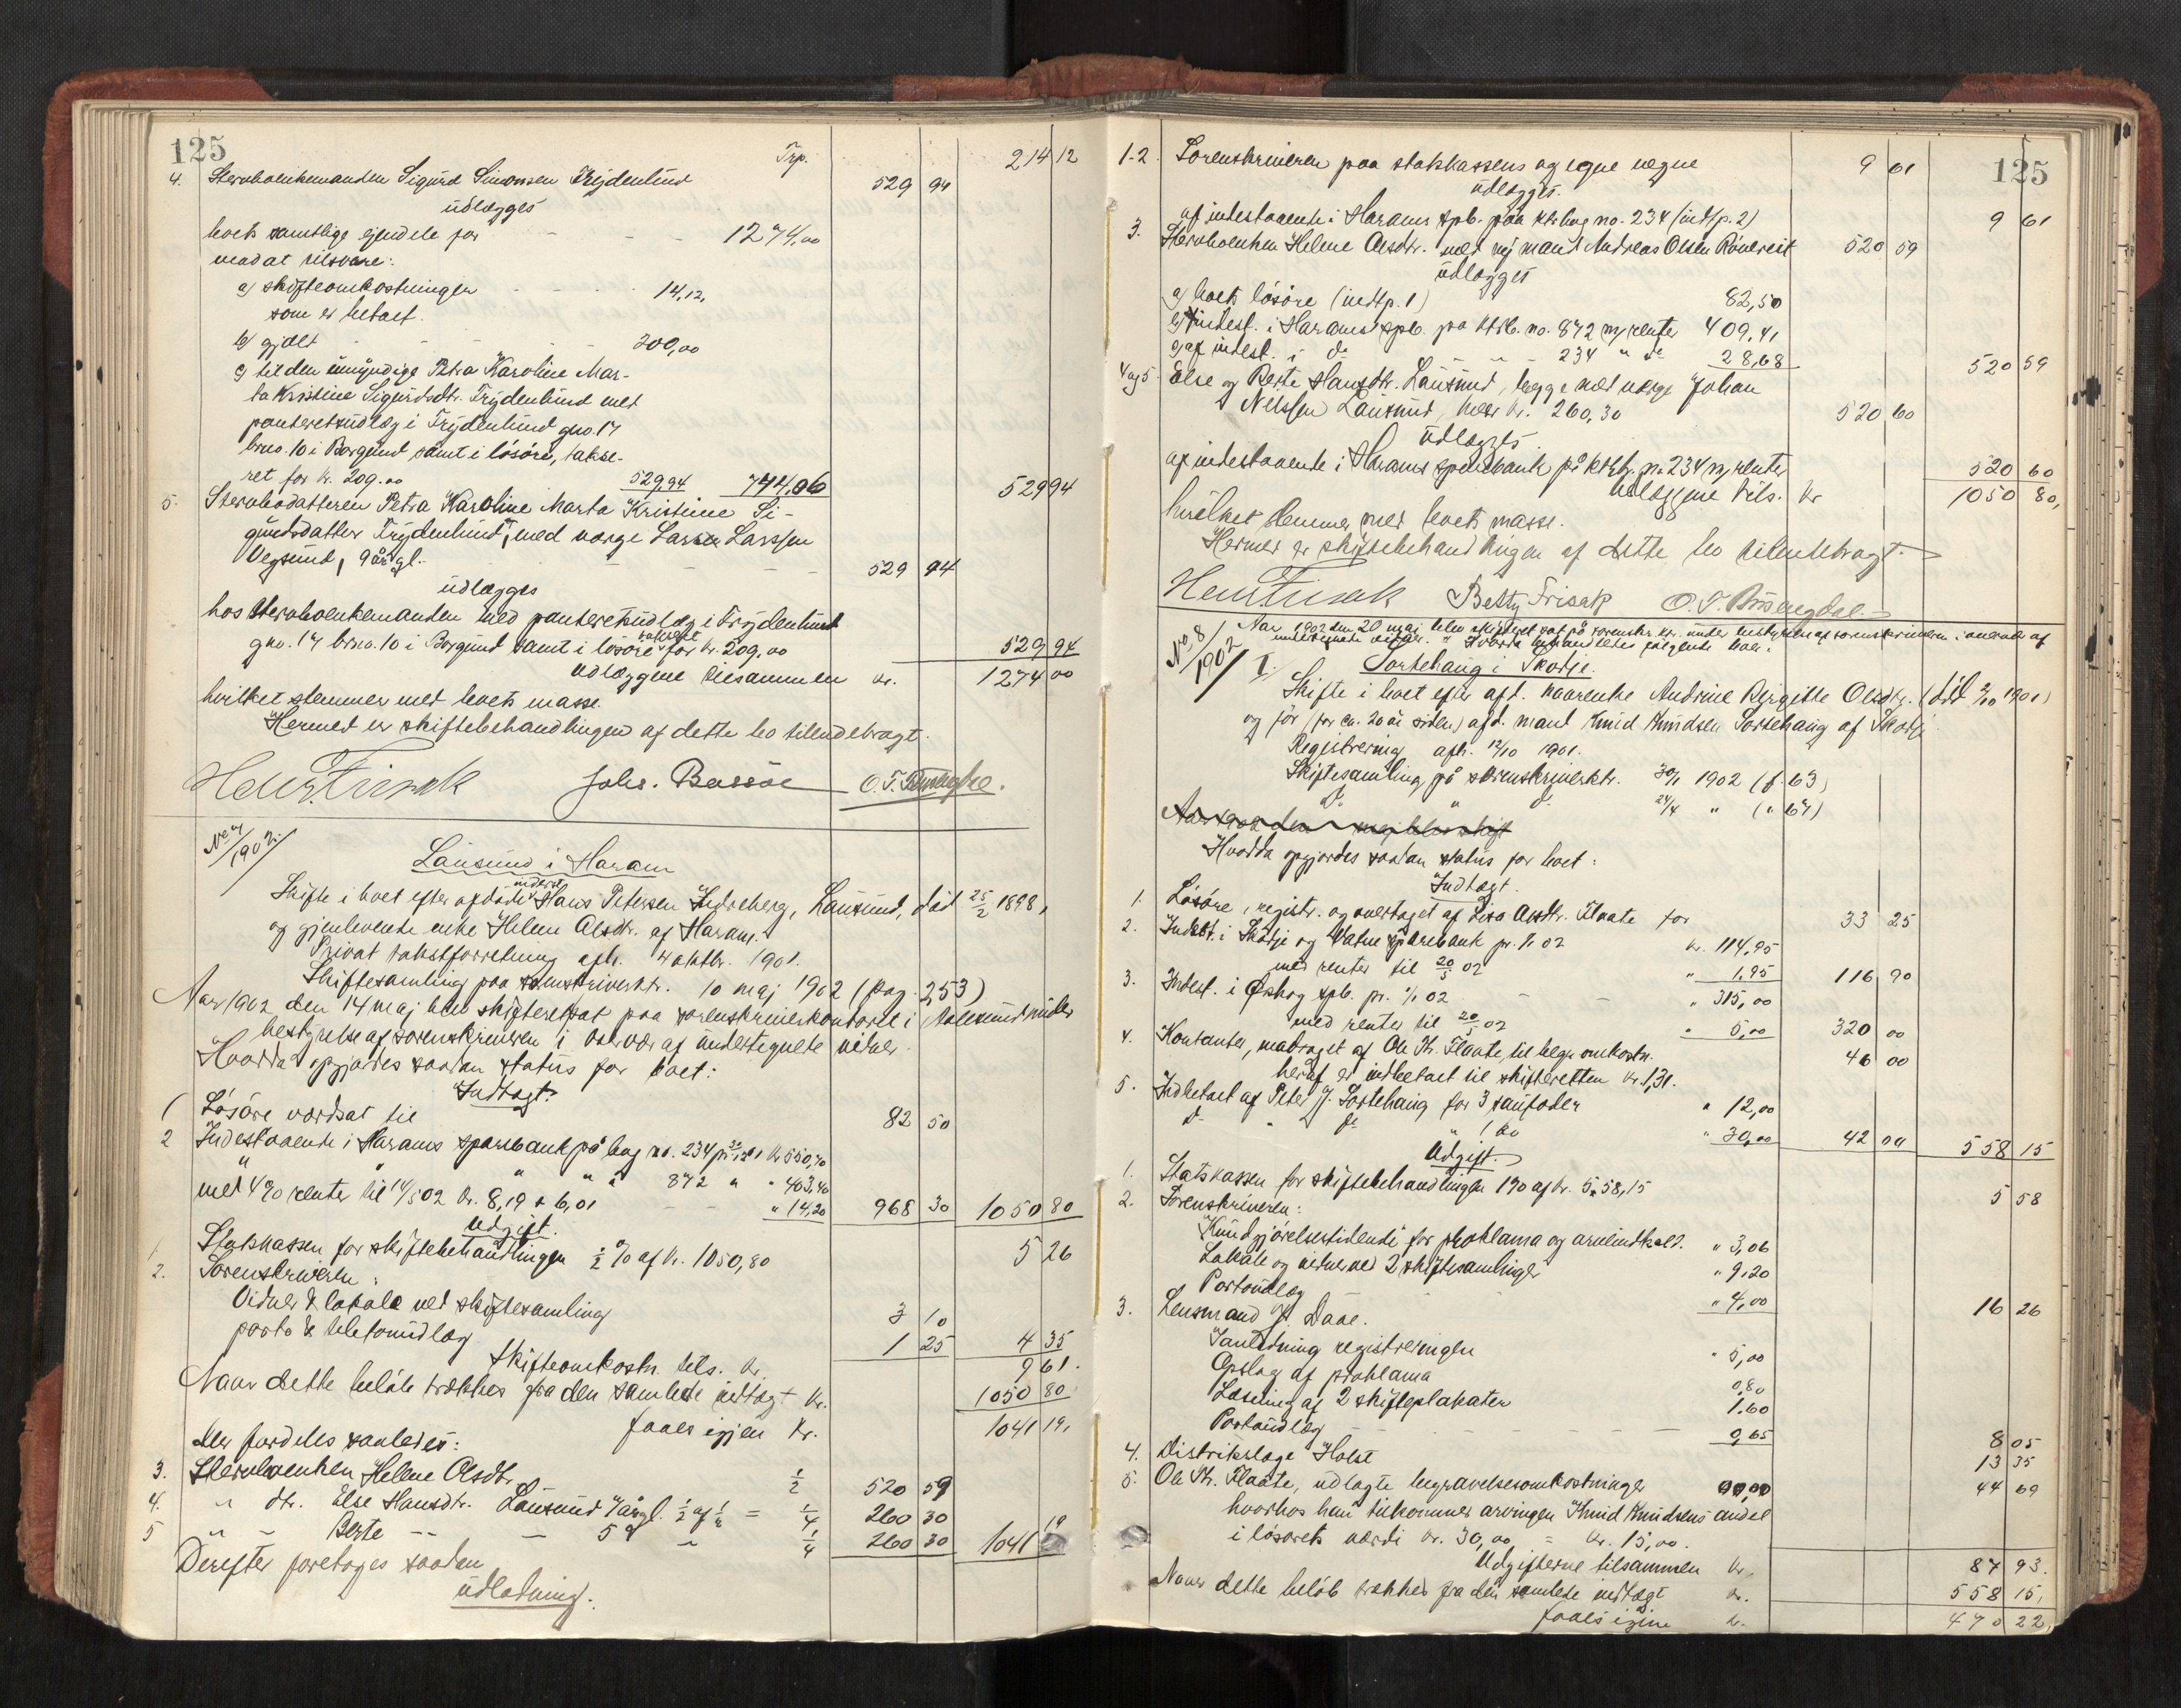 125
Trp. 214 12
4. Stervboenkemanden Sigurd Simonsen Frydenlund 529 94
udlægges
boets samtlige eiendele for - - - 1274,00
mod at tilsvare:
a) skifteomkostningen - - - 14,12,
som er betalt.
b) gjæld - - - 200,00
c) til den umyndige Petra Karoline Mar-
ta Kristine Sigurdsdtr. Frydenlund med
panteretsudlæg i Frydenlund gno. 17
brno. 10 i Borgund samt i løsøre, takse-
ret for kr. 209.00 529,94 744.06 529 94
5. Stervbodatteren Petra Karoline Marta Kristine Si-
gurdsdatter Frydenlund, med værge Lasse Larssen
Vegsund, 9 år gl. - - - 529 94
udlægges
hos stervboenkemanden med panteretsudlæg i Frydenlund
gno. 17 brno. 10 i Borgund samt i løsøre takseret for kr. 209,00 529 94
Udlæggene tilsammen kr. 1274 00
hvilket stemmer med boets masse.
Hermed er skiftebehandlingen af dette bo tilendebragt.
Johs. Bassøe
1902
Lausund i Haram
Skifte i boet efter afdøde inderst Hans Petersen Indreberg, Lausund, død 25/2 1898,
og gjenlevende enke Helene Olsdtr. af Haram.
Privat takstforretning afh. 4 oktbr. 1901.
Skiftesamling paa sorenskriverktr. 10 maj 1902 (pag. 253)
Aar 1902 den 14 maj blev skifteret sat paa sorenskriverkontoret i Aalesund under
bestyrelse af sorenskriveren i overvær af undertegnede vidner.
Hvorda opgjordes saadan status for boet:
Indtægt:
1 Løsøre værdsat til 82 50
2 Indestaaende i Harams sparebank på bog no. 234 pr. 31/12 01 kr 550,70
" " " " " 872 " " 403,40
med 4 % renter til 14/5 02 kr. 8,19 + 6,01 - - " 14,20 968 30 1050 80
Udgift.
1. Statskassen for skiftebehandlingen ½ % af kr. 1050,80 5 26
2. Sorenskriveren:
Vidner & lokale ved skiftesamling 3 10
porto & telefonudlæg 1 25 4 35
Skifteomkostn. tils. kr. 9 61.
Naar dette beløb trækkes fra den samlede indtægt kr. 1050 80
faaes igjen kr. 1041 19,
der fordeles saaledes:
3. Stervboenken Helene Olsdtr. ½ 520 59
4. " dtr. Else Hansdtr. Lausund 7 år gl. ½ af ½ = ¼ 260 30
5 " - Berte - - - 5 " " ¼ 260 30 1041 19
Derefter foretages saadan
udlodning.
125
1-2. Sorenskriveren paa statskassens og egne vegne 9 61
udlægges.
af indestaaende i Harams spb. paa ktrbog no. 234 (indtp. 2) 9 61
3. Stervboenken Helene Olsdtr. med ny mand Andreas Olsen Røneseit 520 59
udlægges
a) boets løsøre (indtp. 1) 82,50
b) indest. i Harams spb. pa ktrb. no. 872 m/ renter 409,41
c) af indest. i do - " - 234 " do 28,68 520 59
4 og 5. Else og Berte Hansdtr. Lausund, begge med værge Johan
Nilssen Lausund, hver kr. 260,30 520 60
udlægges.
af indestaaende i Harams sparebank på ktrb. no 234 m/ renter 520 60
Udlæggene tils. kr 1050 80,
hvilket stemmer med boets masse.
Hermed er skiftebehandlingen af dette bo tilendebragt.
Betty Frisak
No. 8/1902
Aar 1902 den 20 maj blev skifteret sat på sorenskr. ktr. under bestyrelse af sorenskriveren i overvær af
undertegnede vidner. Hvorda behandledes følgende boer:
I. Sortehaug i Skodje.
Skifte i boet efter afd. kaarenke Andrine Birgitte Olsdtr. (død 2/10 1901)
og før (for ca. 20 år siden) afd. mand Knud Knudsen Sortehaug af Skodje
Registrering afh. 12/10 1901.
Skiftesamling på sorenskriverktr. 30/1 1902 (f. 63)
do " do 24/4 " (" 67)
Hvorda opgjordes saadan status for boet:
Indtægt.
1. Løsøre, registr. og overtaget af Lisa Olsdtr. Flaate for 33 25
2. Indest. i Skodje og Vatne sparebank pr. 1/1 02 kr. 114,95
med renter til 20/5 02 " 1,95 116 90
3. Indest. i Ørskog spb. pr. 1/1 02 - - " 315,00
med renter til 20/5 02 " 5,00 320 00
4. Kontanter, modtaget af Ole Kr. Flaate, til begr. omkostn. 46 00
heraf er indbetalt til skifteretten kr. 1,31.
5. Indbetalt af Peter J. Sortehaug for 3 saufoder " 12,00
do " do " 1 ko " 30,00 42 00 558 15
Udgift.
1. Statskassen for skiftebehandlingen 1% af kr. 558,15 5 58
2. Sorenskriveren:
Kundgjørelsestidende for proklama og arveindkald. " 3,06
Lokale og vidner ved 2 skiftesamlinger " 9.20
Portoudlæg " 4,00 16 26
3. Lensmand P. Daae.
I anledning registreringen " 5,00
Opslag af proklama 0,80
Læsning af 2 skifteplakater 1.60
Portoudlæg - - - 0,65 8 05
4. Distriktslæge Holst 13 35
5. Ole Kr. Flaate, udlagte begravelsesomkostninger 44 69
hvorhos han tilkommer arvingen Knud Knudsens andel
i løsørets værdi kr. 30,00 = kr. 15,00.
Udgifterne tilsammen kr. 87 93.
Naar dette beløb trækkes fra den samlede indtægt kr. 558 15,
faaes igjen kr. 470 22,